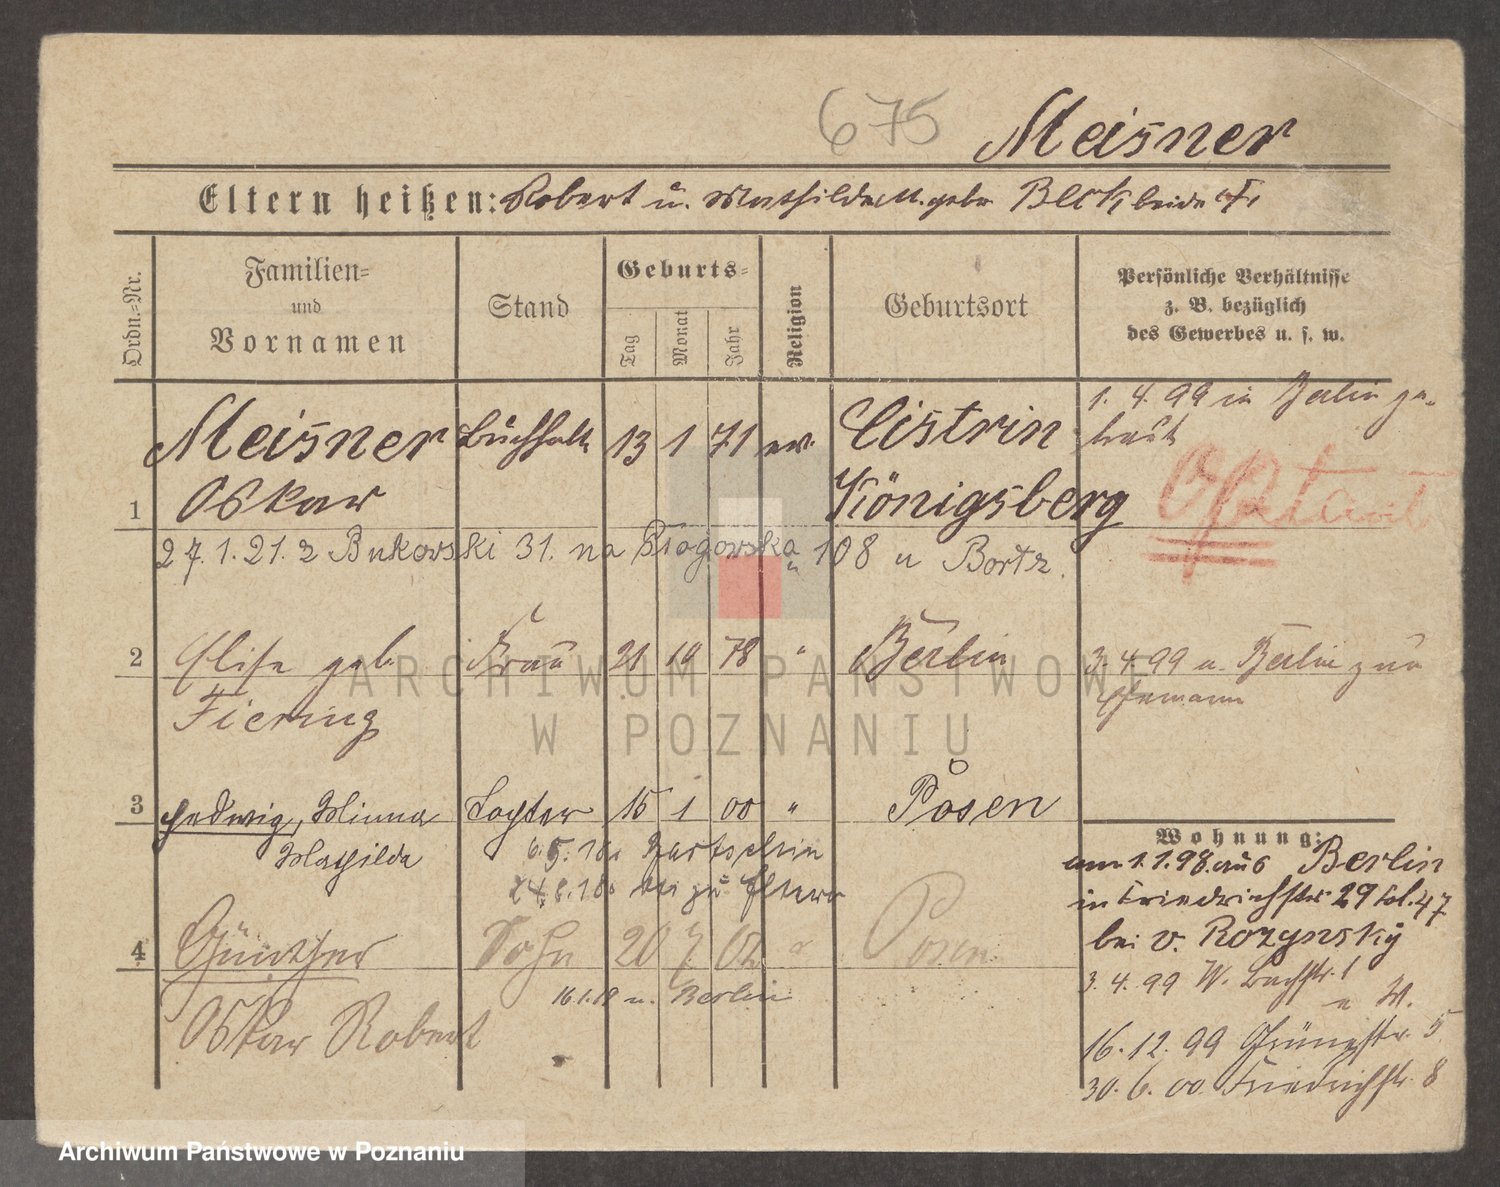 675 Meisner
Eltern heißen: Robert u. Mathilde M. geb. Beck, beide †.
Ordn.=Nr.
Familien=
und
Vornamen
Stand
Geburts=
Tag
Monat
Jahr
Religion
Geburtsort
Persönliche Verhältnisse
z. B. bezüglich
des Gewerbes u. s. w.
Meisner Buchhalt. 13 1 71 ev. Cüstrin
1 Oskar Königsberg
1. 4. 99 in Berlin ge-
traut
Optant
27.1.21. z Bukowski 31. na Głogowska 108 u Bortz.
2 Elise geb. Frau 21 10 78 " Berlin
Fiering
3.4.99 v. Berlin zum
Ehemann
3 Hedwig, Minna Tochter 15 1 00 " Posen
Mathilde
6.5.18.
24.8.18. zu Eltern
4 Günther Sohn 20 7 02 " Posen
16.1.18 n. Berlin
Oskar Robert
Wohnung:
am 1.1.98. aus Berlin
in Friedrichstr. 29 Fol. 47
bei v.
3. 4. 99 W. Bachstr. 1
16. 12. 99 Grünestr. 5
30. 6. 00 Friedrichstr. 8
ARCHIWUM PAŃSTWOWE
W POZNANIU
Archiwum Państwowe w Poznaniu